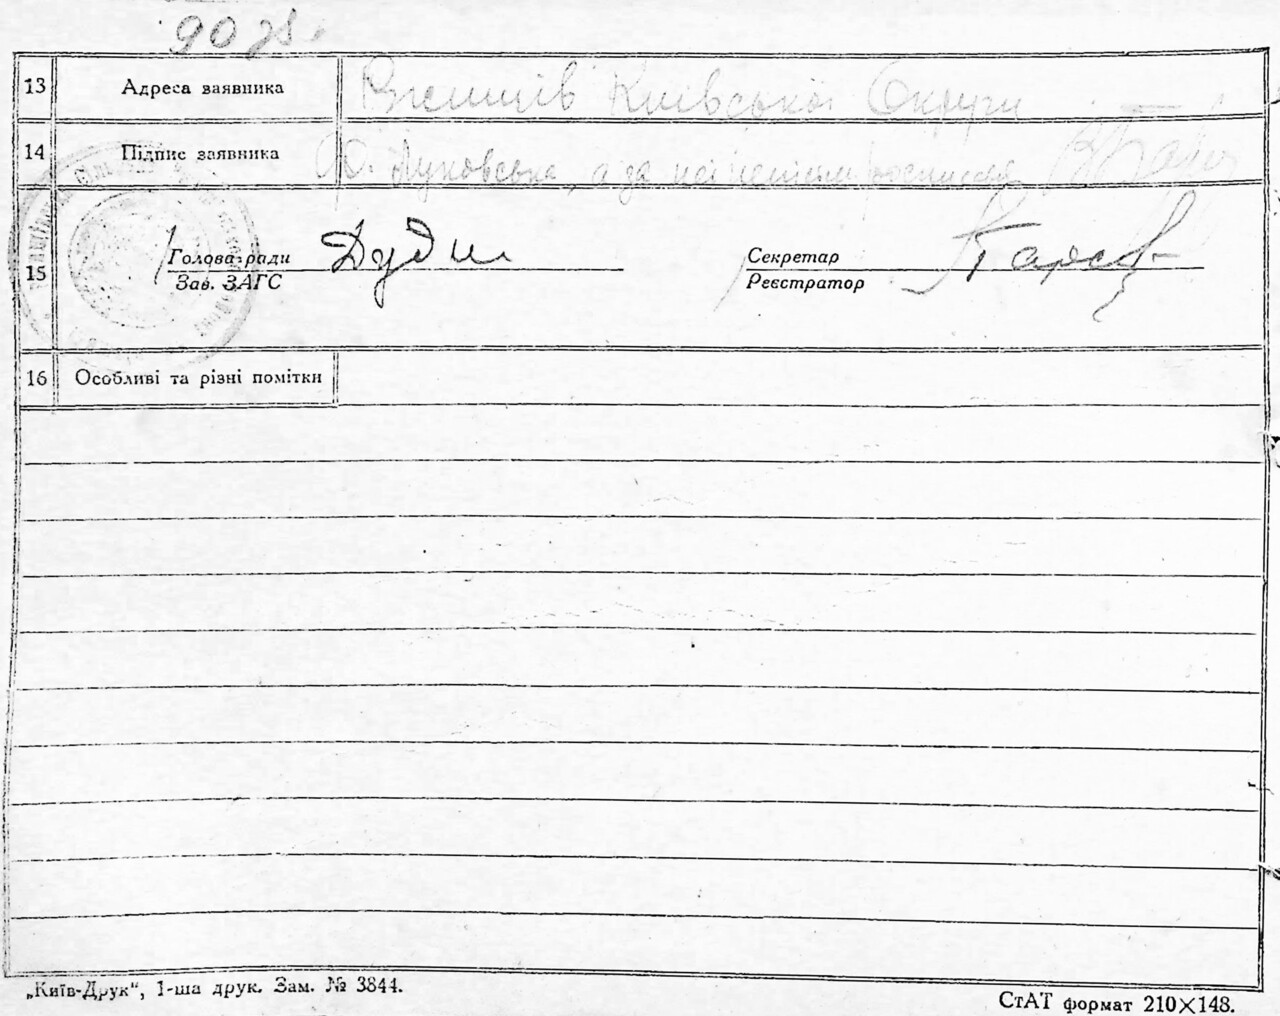 13 Адреса заявника Ржищів Київської Округи
14 Підпис заявника Луковська, а за неї
15 Голова ради Дудш Секретар
Зав. ЗАГС Реєстратор
16 Особливі та різні помітки
„Київ-Друк“, 1-ша друк. Зам. № 3844.
СтАТ формат 210×148.